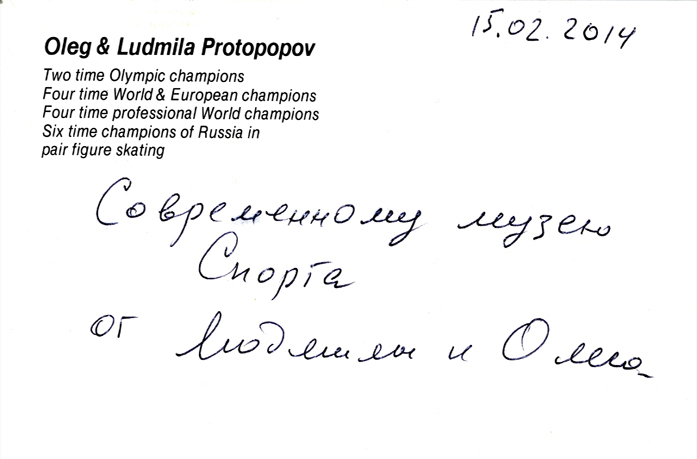 15.02.2014
Oleg & Ludmila Protopopov
Two time Olympic champions
Four time World & European champions
Four time professional World champions
Six time champions of Russia in
pair figure skating
Современному музею
Спорта
от Людмилы и Олега